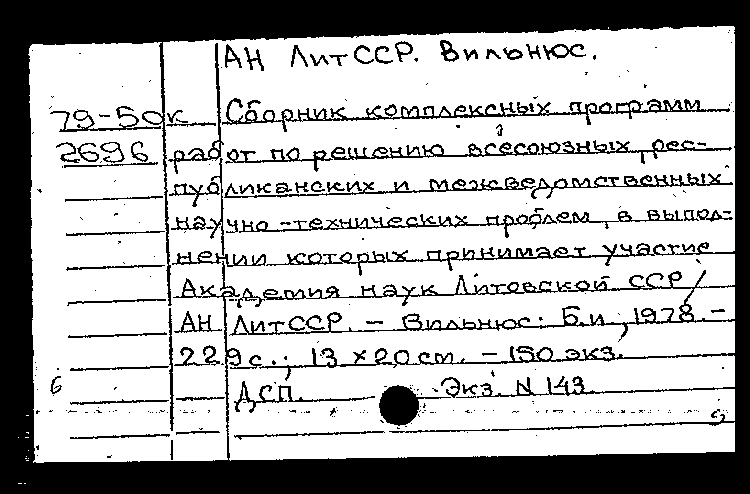 АН ЛитССР. Вильнюс.
79-50к Сборник комплексных программ
2696 работ по решению всесоюзных, рес-
публиканских и межведомственных
научно-технических проблем, в выпол-
нении которых принимает участие
Академия наук Литовской ССР /
АН ЛитССР. – Вильнюс: Б.и., 1978. –
229 с.; 13 × 20 см. – 150 экз.
б ДСП. Экз. N 143.